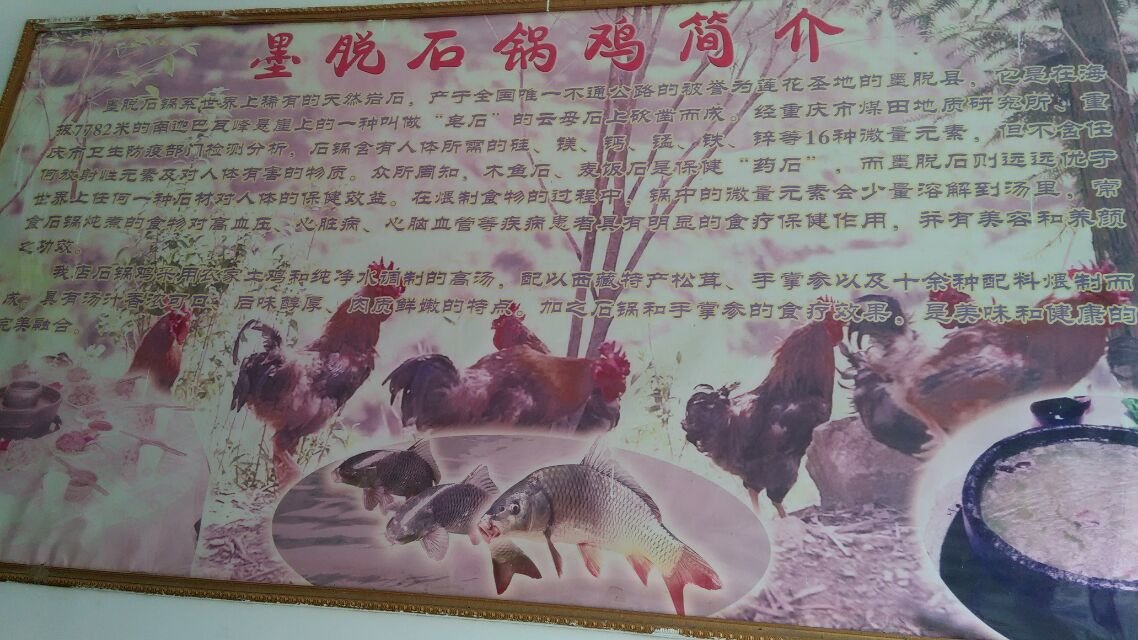 墨脱石锅鸡简介
墨脱石锅系世界上稀有的天然岩石，产于全国唯一不通公路的被誉为莲花圣地的墨脱县，它是在海
拔7782米的南迦巴瓦峰悬崖上的一种叫做“皂石”的云母石上砍凿而成。经重庆市煤田地质研究所、重
庆市卫生防疫部门检测分析，石锅含有人体所需的硅、镁、钙、锰、铁、锌等16种微量元素，但不含任
何放射性元素及对人体有害的物质。众所周知，木鱼石、麦饭石是保健“药石”，而墨脱石则远远优于
世界上任何一种石材对人体的保健效益。在煨制食物的过程中，锅中的微量元素会少量溶解到汤里，常
食石锅炖煮的食物对高血压、心脏病、心脑血管等疾病患者具有明显的食疗保健作用，并有美容和养颜
之功效。
我店石锅鸡采用农家土鸡和纯净水调制的高汤，配以西藏特产松茸、手掌参以及十余种配料煨制而
成，具有汤汁香浓可口、后味醇厚、肉质鲜嫩的特点。加之石锅和手掌参的食疗效果，是美味和健康的
完美融合。